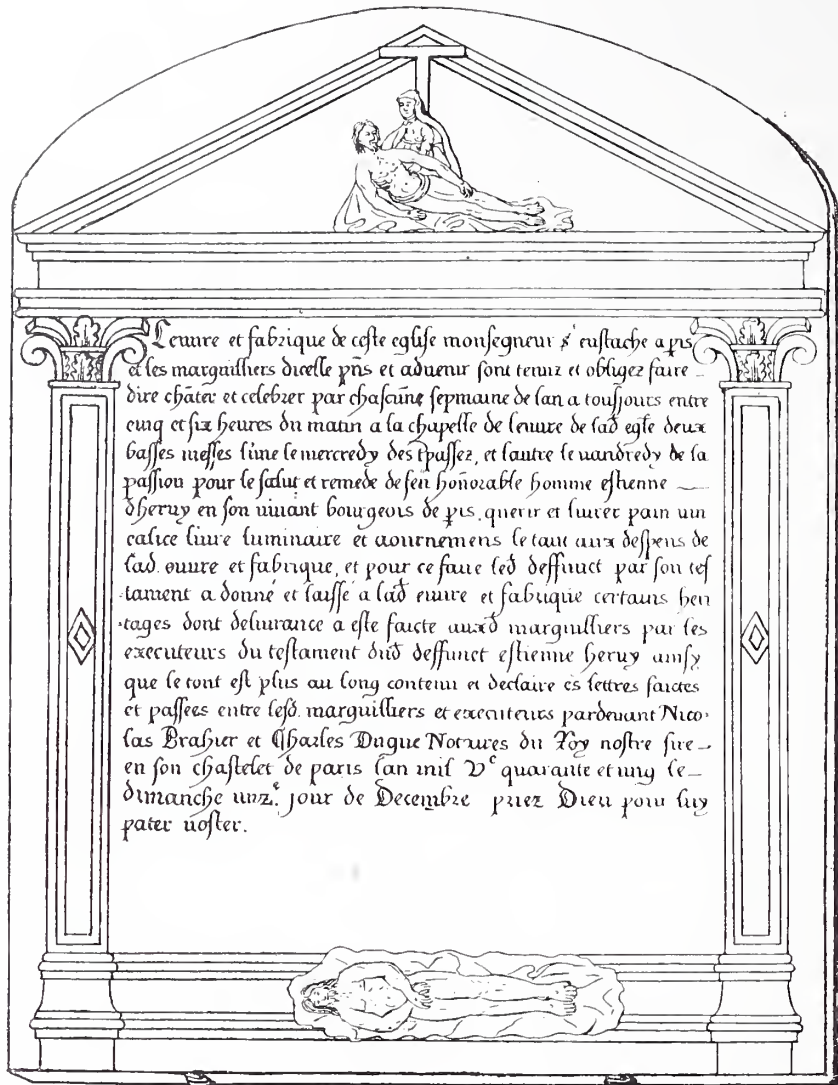 Leuure et fabrique de ceste eglise monsegneur s' eustache a p̱is
et les marguilliers dicelle pñs et aduenir sont tenuz et obligez faire
dire chāter et celebrer par chascune sepmaine de lan a tousjours entre
cinq et six heures du matin a la chapelle de leuure de lad̄ egłe deux
basses messes lune le mercredy des tpassez, et lautre le vandredy de la
passion pour le salut et remede de feu honnorable homme estienne
dheruy en son viuant bourgeois de p̱is, querir et liurer pain vin
calice liure luminaire et aournemens le tout aux despens de
lad. euure et fabrique, et pour ce faire led̄ deffunct par son tes
tament a donné et laissé a lad̄ euure et fabrique certains heri
tages dont deliurance a este faicte auxd̄ marguilliers par les
executeurs du testament dud̄ deffunct estienne heruy ainsy
que le tout est plus au long contenu et declaire es lettres faictes
et passees entre lesd. marguilliers et executeurs pardeuant Nico-
las Brahier et Charles Duque Notaires du Roy nostre sire
en son chastelet de paris lan mil Vᶜ quarante et ung le
dimanche unzᵉ. jour de Decembre priez Dieu pour luy
pater noster.